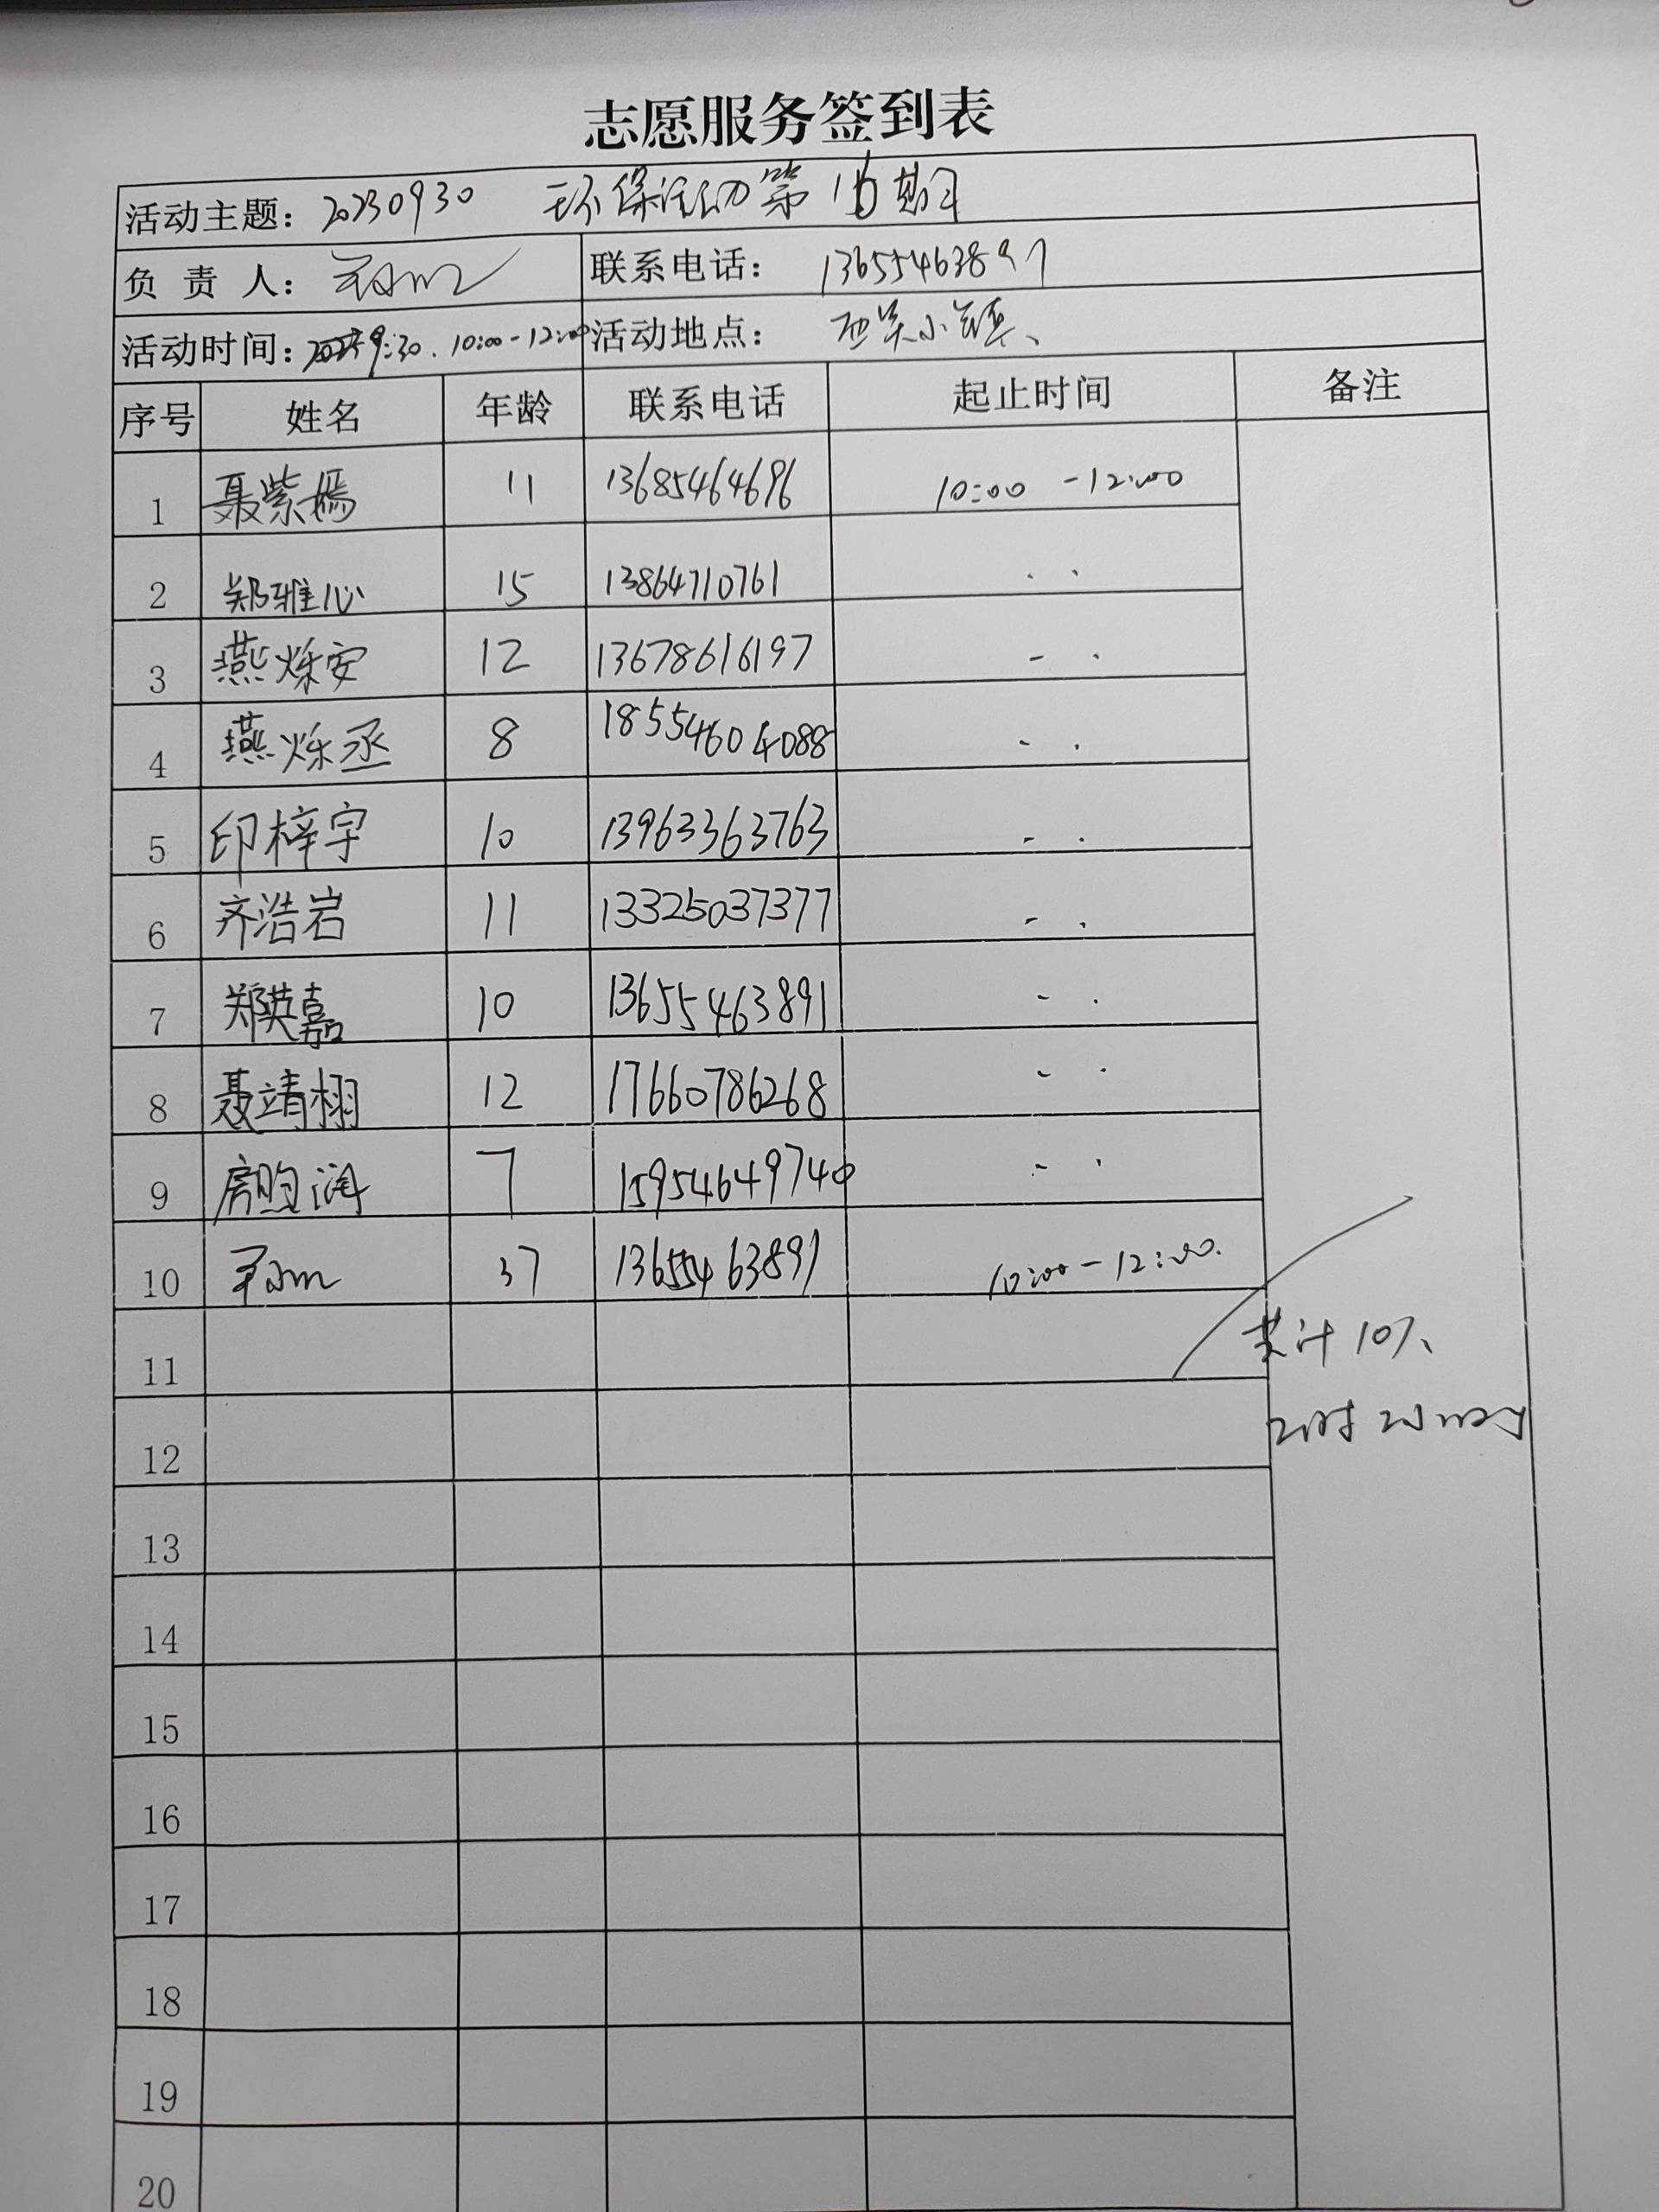 志愿服务签到表
活动主题: 20230930 环保活动第16期
负责人: 联系电话: 13655463891
活动时间: 9:30. 10:00-12:00 活动地点: 小镇、
序号 姓名 年龄 联系电话 起止时间 备注
1 聂紫嫣 11 13685464696 10:00 -12:00
2 郑雅心 15 13864710761
3 燕烁安 12 13678616197
4 燕烁丞 8 18554604088
5 印梓宇 10 13963363763
6 齐浩岩 11 13325037377
7 郑英嘉 10 13655463891
8 聂靖栩 12 17660786268
9 房昀润 7 15954649740
10 37 13655463891 10:00-12:00.
11 共计10人、
12 2小时
13
14
15
16
17
18
19
20